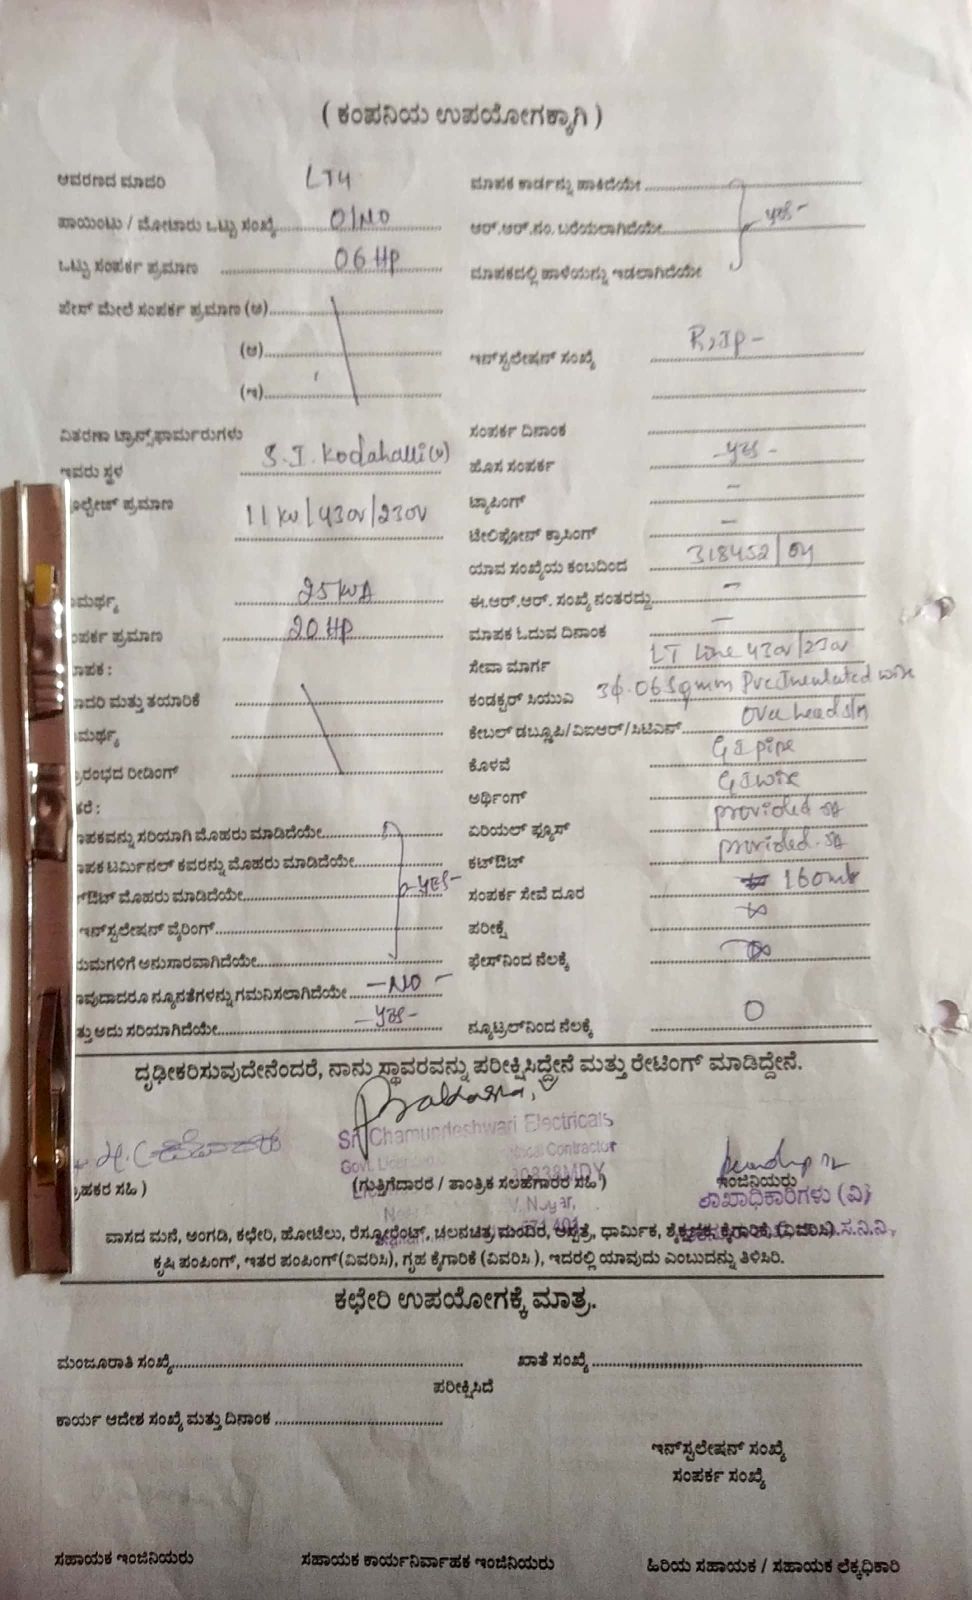 ( ಕಂಪನಿಯ ಉಪಯೋಗಕ್ಕಾಗಿ )
ಆವರಣದ ಮಾದರಿ LT4
ಪಾಯಿಂಟು / ಮೋಟಾರು ಒಟ್ಟು ಸಂಖ್ಯೆ 01NO
ಒಟ್ಟು ಸಂಪರ್ಕ ಪ್ರಮಾಣ 06 HP
ಪೇಸ್ ಮೇಲೆ ಸಂಪರ್ಕ ಪ್ರಮಾಣ (ಅ)
(ಆ)
(ಇ)
ವಿತರಣಾ ಟ್ರಾನ್ಸ್‌ಫಾರ್ಮರುಗಳು
ಇವರು ಸ್ಥಳ S.I. Kodahalli(v)
ೋಲ್ಟೇಜ್ ಪ್ರಮಾಣ 11kv/430v/230v
ಾಮರ್ಥ್ಯ 25 KVA
ಂಪರ್ಕ ಪ್ರಮಾಣ 20 HP
ಾಪಕ :
ಾದರಿ ಮತ್ತು ತಯಾರಿಕೆ
ಾಮರ್ಥ್ಯ
್ರಾರಂಭದ ರೀಡಿಂಗ್
ಕರೆ :
ಾಪಕವನ್ನು ಸರಿಯಾಗಿ ಮೊಹರು ಮಾಡಿದೆಯೇ
ಾಪಕ ಟರ್ಮಿನಲ್ ಕವರನ್ನು ಮೊಹರು ಮಾಡಿದೆಯೇ
್‌ಔಟ್ ಮೊಹರು ಮಾಡಿದೆಯೇ -yes-
ಇನ್‌ಸ್ಟಲೇಷನ್ ವೈರಿಂಗ್
ಯಮಗಳಿಗೆ ಅನುಸಾರವಾಗಿದೆಯೇ
ಾವುದಾದರೂ ನ್ಯೂನತೆಗಳನ್ನು ಗಮನಿಸಲಾಗಿದೆಯೇ -NO-
ತ್ತು ಅದು ಸರಿಯಾಗಿದೆಯೇ -yes-
ಮಾಪಕ ಕಾರ್ಡನ್ನು ಹಾಕಿದೆಯೇ
ಆರ್.ಆರ್.ನಂ. ಬರೆಯಲಾಗಿದೆಯೇ yes-
ಮಾಪಕದಲ್ಲಿ ಹಾಳೆಯನ್ನು ಇಡಲಾಗಿದೆಯೇ
ಇನ್‌ಸ್ಟಲೇಷನ್ ಸಂಖ್ಯೆ
ಸಂಪರ್ಕ ದಿನಾಂಕ
ಹೊಸ ಸಂಪರ್ಕ -yes-
ಟ್ಯಾಪಿಂಗ್ -
ಟೆಲಿಫೋನ್ ಕ್ರಾಸಿಂಗ್ -
ಯಾವ ಸಂಖ್ಯೆಯ ಕಂಬದಿಂದ 318452/04
ಈ.ಆರ್.ಆರ್. ಸಂಖ್ಯೆ ನಂತರದ್ದು -
ಮಾಪಕ ಓದುವ ದಿನಾಂಕ -
ಸೇವಾ ಮಾರ್ಗ LT Line 430v/230v
ಕಂಡಕ್ಟರ್ ಸಿಯುಎ 3ϕ. 06 Sqmm Pvc Insulated wire
ಕೇಬಲ್ ಡಬ್ಲ್ಯೂಪಿ/ವಿಐಆರ್/ಸಿಟಿಎಸ್ Over head s/m
ಕೊಳವೆ GI pipe
ಅರ್ಥಿಂಗ್ GI wire
ಏರಿಯಲ್ ಫ್ಯೂಸ್ provided
ಕಟ್‌ಔಟ್ provided
ಸಂಪರ್ಕ ಸೇವೆ ದೂರ 160
ಪರೀಕ್ಷೆ ∞
ಫೇಸ್‌ನಿಂದ ನೆಲಕ್ಕೆ ∞
ನ್ಯೂಟ್ರಲ್‌ನಿಂದ ನೆಲಕ್ಕೆ 0
ದೃಢೀಕರಿಸುವುದೇನೆಂದರೆ, ನಾನು ಸ್ಥಾವರವನ್ನು ಪರೀಕ್ಷಿಸಿದ್ದೇನೆ ಮತ್ತು ರೇಟಿಂಗ್ ಮಾಡಿದ್ದೇನೆ.
Sri Chamundeshwari Electricals
Contractor
್ರಾಹಕರ ಸಹಿ )
(ಗುತ್ತಿಗೆದಾರರ / ತಾಂತ್ರಿಕ ಸಲಹೆಗಾರರ ಸಹಿ)
ಇಂಜಿನಿಯರು
ಶಾಖಾಧಿಕಾರಿಗಳು (ವಿ)
ವಾಸದ ಮನೆ, ಅಂಗಡಿ, ಕಛೇರಿ, ಹೋಟೆಲು, ರೆಸ್ಟೋರೆಂಟ್, ಚಲನಚಿತ್ರ ಮಂದಿರ, ಆಸ್ಪತ್ರೆ, ಧಾರ್ಮಿಕ, ಶೈಕ್ಷಣಿಕ, ಕೈಗಾರಿಕೆ, (ವಿವರಿಸಿ)
ಕೃಷಿ ಪಂಪಿಂಗ್, ಇತರ ಪಂಪಿಂಗ್ (ವಿವರಿಸಿ), ಗೃಹ ಕೈಗಾರಿಕೆ (ವಿವರಿಸಿ ), ಇದರಲ್ಲಿ ಯಾವುದು ಎಂಬುದನ್ನು ತಿಳಿಸಿರಿ.
ಕಛೇರಿ ಉಪಯೋಗಕ್ಕೆ ಮಾತ್ರ.
ಮಂಜೂರಾತಿ ಸಂಖ್ಯೆ ಖಾತೆ ಸಂಖ್ಯೆ
ಪರೀಕ್ಷಿಸಿದೆ
ಕಾರ್ಯ ಆದೇಶ ಸಂಖ್ಯೆ ಮತ್ತು ದಿನಾಂಕ
ಇನ್‌ಸ್ಟಲೇಷನ್ ಸಂಖ್ಯೆ
ಸಂಪರ್ಕ ಸಂಖ್ಯೆ
ಸಹಾಯಕ ಇಂಜಿನಿಯರು ಸಹಾಯಕ ಕಾರ್ಯನಿರ್ವಾಹಕ ಇಂಜಿನಿಯರು ಹಿರಿಯ ಸಹಾಯಕ / ಸಹಾಯಕ ಲೆಕ್ಕಧಿಕಾರಿ